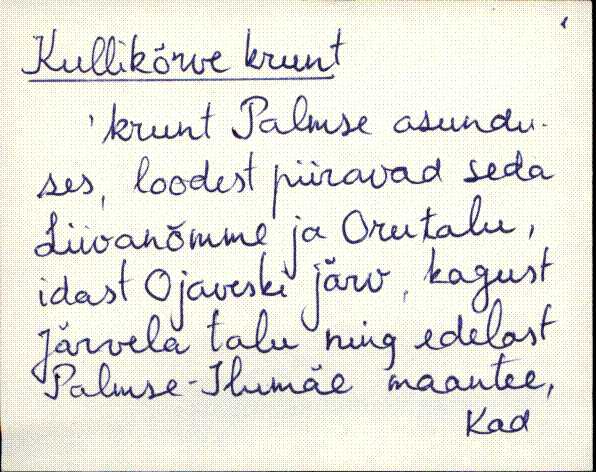 Kullikõrve krunt
'krunt Palmse asundu-
ses, loodest piiravad seda
Liivanõmme ja Orutalu,
idast Ojaveski järv, kagust
Järvela talu ning edelast
Palmse-Ilumäe maantee,
Kad